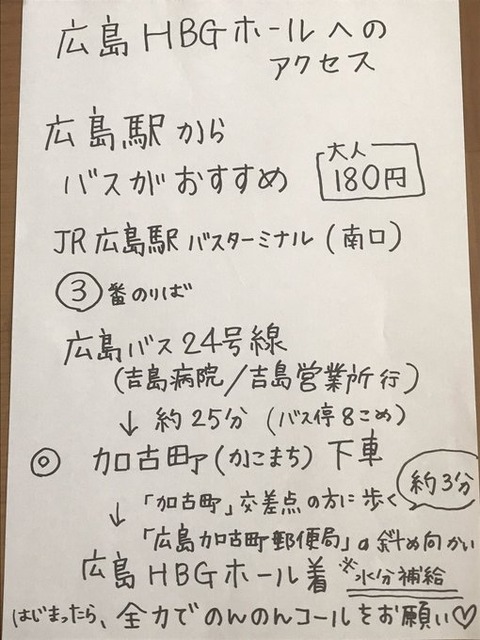 広島HBGホールへの
アクセス
広島駅から
バスがおすすめ
大人
180円
JR広島駅バスターミナル(南口)
③番のりば
広島バス24号線
(吉島病院/吉島営業所行)
↓約25分(バス停8こめ)
◎加古町(かこまち)下車
約3分
↓「加古町」交差点の方に歩く
「広島加古町郵便局」の斜め向かい
広島HBGホール着 ※水分補給
はじまったら、全力でのんのんコールをお願い♡